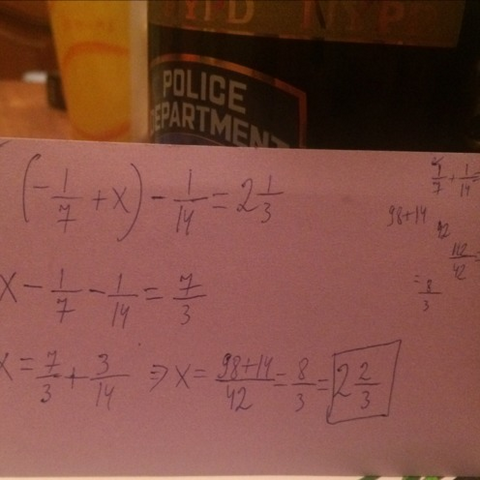 NYPD NYP
POLICE
DEPARTMENT
(-1/7 + x) - 1/14 = 2 1/3
x - 1/7 - 1/14 = 7/3
x = 7/3 + 3/14 => x = 98+14/42 = 8/3 = 2 2/3
1/7 + 1/14 =
98+14
42
112/42 =
= 8/3